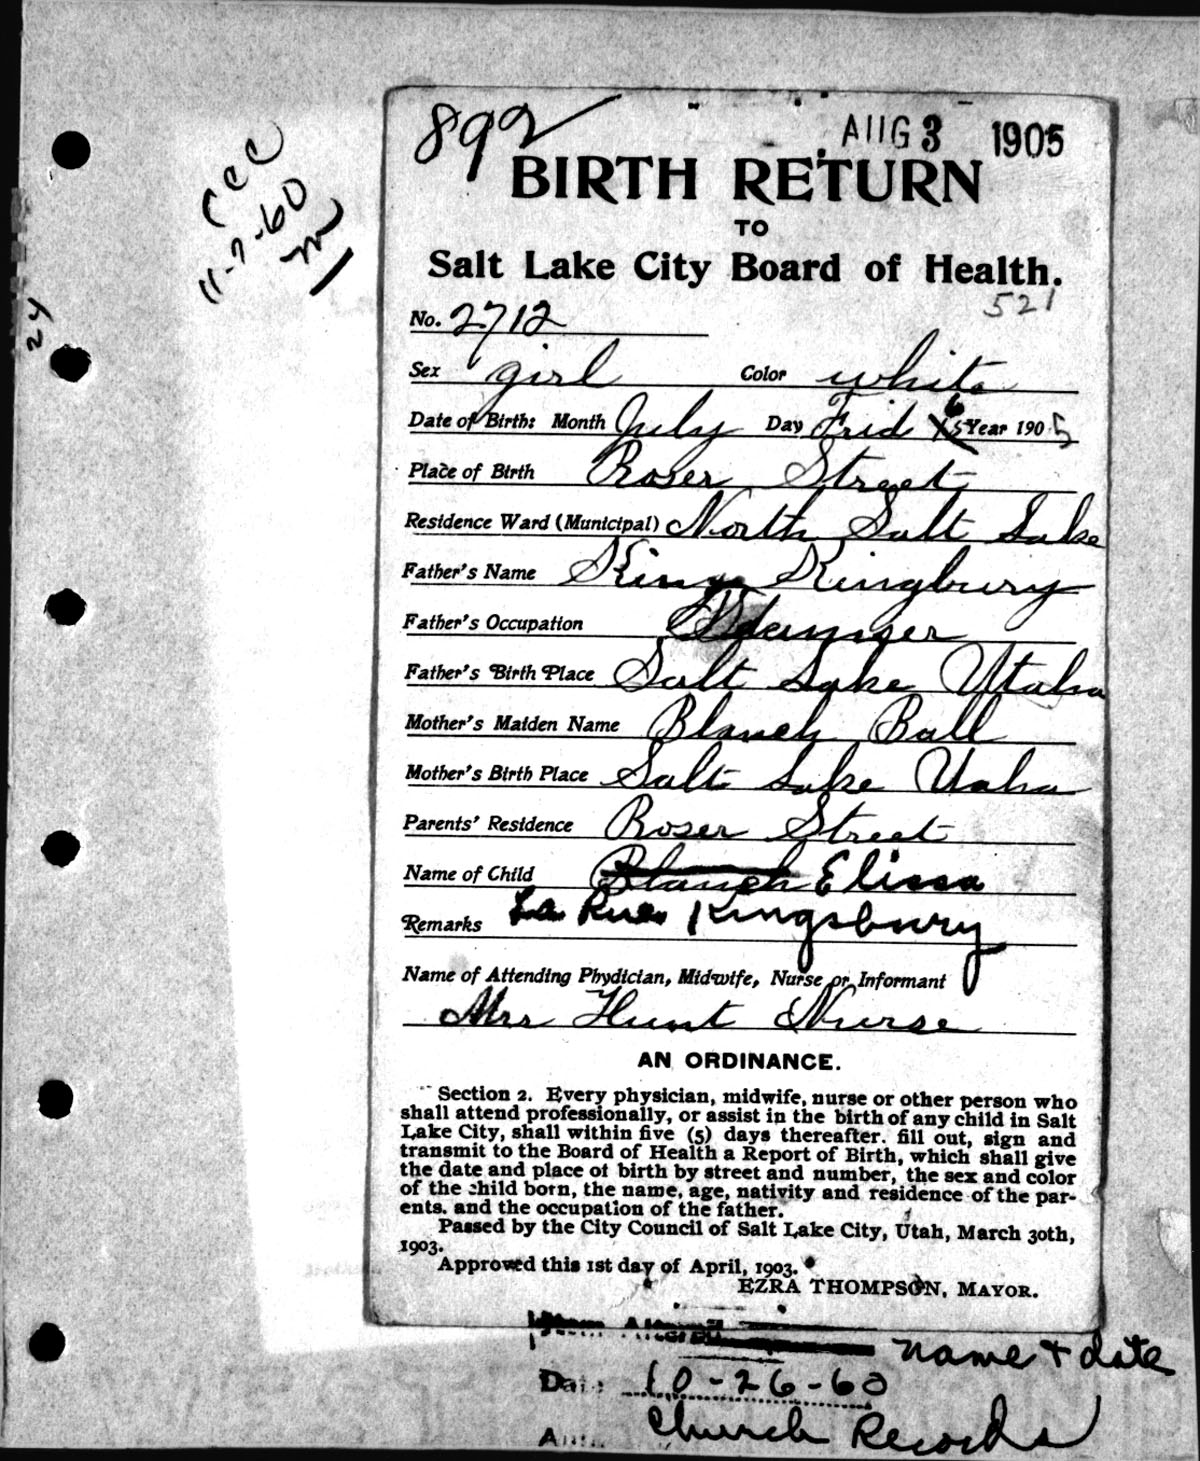 892
AUG 3 1905
rec
11-7-60
m
24
BIRTH RETURN
TO
Salt Lake City Board of Health.
521
No. 2712
Sex girl Color white
Date of Birth: Month July Day Frid 6 Year 1905
Place of Birth Roser Street
Residence Ward (Municipal) North Salt Lake
Father's Name King Kingbury
Father's Occupation
Father's Birth Place Salt Lake Utaha
Mother's Maiden Name Blanch Ball
Mother's Birth Place Salt Lake Uaha
Parents' Residence Roser Street
Name of Child Blanch Elissa
Remarks La Rue Kingsbury
Name of Attending Phydician, Midwife, Nurse or Informant
Mrs Hunt Nurse
AN ORDINANCE.
Section 2. Every physician, midwife, nurse or other person who
shall attend professionally, or assist in the birth of any child in Salt
Lake City, shall within five (5) days thereafter. fill out, sign and
transmit to the Board of Health a Report of Birth, which shall give
the date and place of birth by street and number, the sex and color
of the child born, the name, age, nativity and residence of the par-
ents. and the occupation of the father.
Passed by the City Council of Salt Lake City, Utah, March 30th,
1903.
Approved this 1st day of April, 1903.
EZRA THOMPSON, MAYOR.
name + date
Date 10-26-60
church Records